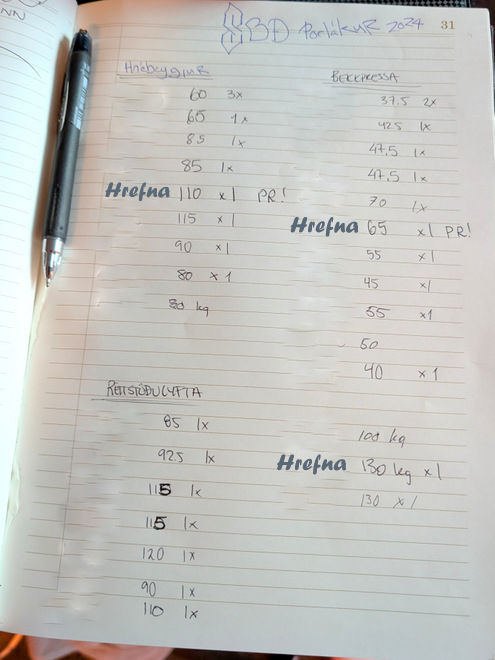 NN
BÐ Þorlákur 2024
31
Hnébeygjur
60 3x
65 1x
85 1x
85 1x
Hrefna 110 x1 PR!
115 x1
90 x1
80 x1
80 kg
BEKKPRESSA
37.5 2x
42.5 1x
47.5 1x
47.5 1x
70 1x
Hrefna 65 x1 PR!
55 x1
45 x1
55 x1
50
40 x1
RÉTTSTÖÐULYFTA
85 1x
92.5 1x
115 1x
115 1x
120 1x
90 1x
110 1x
100 kg
Hrefna 130 kg x1
130 x1